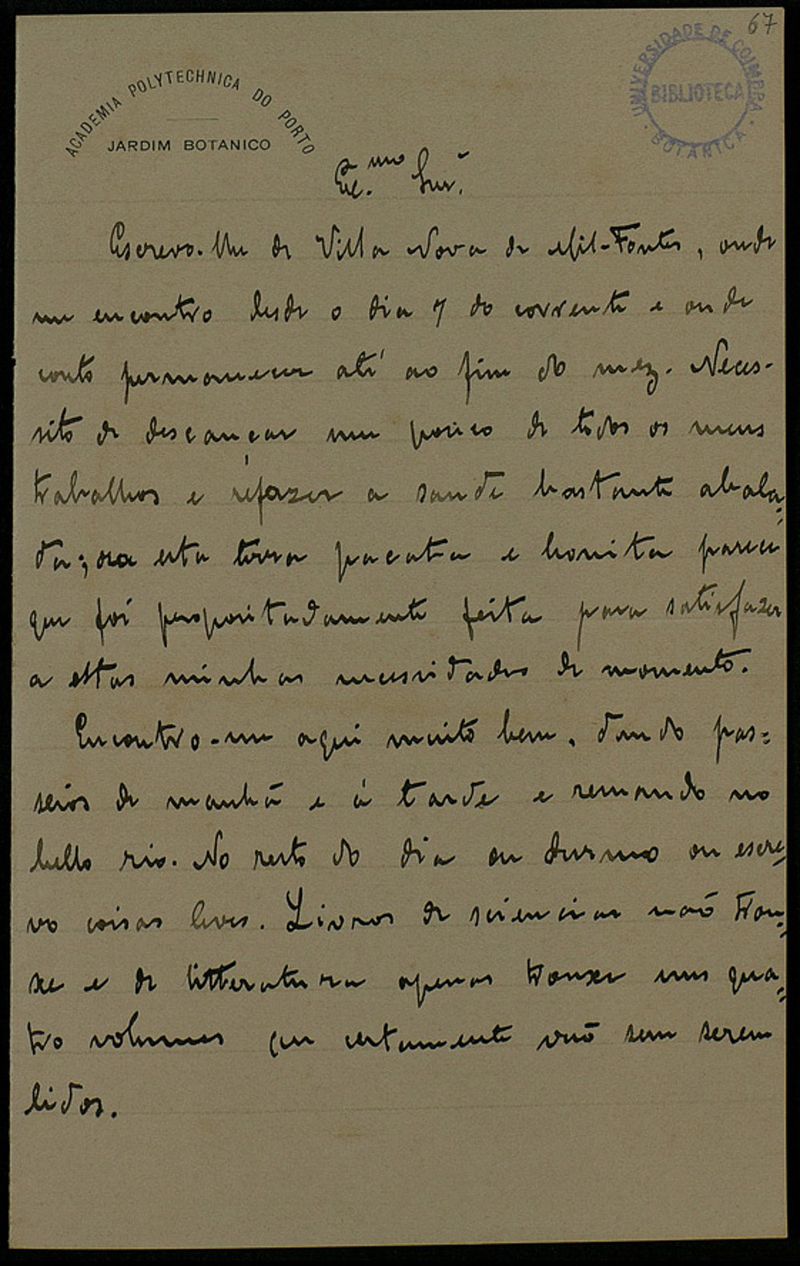 67
ACADEMIA POLYTECHNICA DO PORTO
JARDIM BOTANICO
UNIVERSIDADE DE COIMBRA
BIBLIOTECA
BOTANICA
Ex.mo Snr.
Escrevo-lhe de Villa Nova de Mil-Fontes, onde
me encontro desde o dia 7 do corrente e onde
conto permanecer até ao fim do mez. Neces-
sito de descançar um pouco de todos os meus
trabalhos e refazer a saude bastante abala-
da; ora esta terra pacata e bonita parece
que foi propositadamente feita para satisfazer
a estas minhas necessidades de momento.
Encontro-me aqui muito bem, dando pas-
seios de manhã e á tarde e remando no
bello rio. No resto do dia ou durmo ou escre-
vo coisas leves. Livros de sciencias não trou-
xe e de litteratura apenas trouxe uns qua-
tro volumes que certamente vão sem serem
lidos.